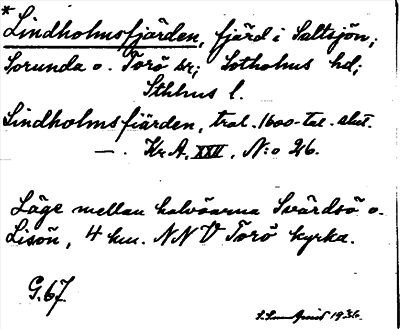 *
Lindholmsfjärden, fjärd i Saltsjön;
Sorunda o. Torö sr; Sotholms hd;
Sthlms l.
Lindholmsfjärden, trol. 1600-tal. slut.
— . Kr A. XXII, N:o 26.
Läge mellan halvöarna Svärdsö o.
Lisön, 4 km. NNV Torö kyrka.
G.67.
1936